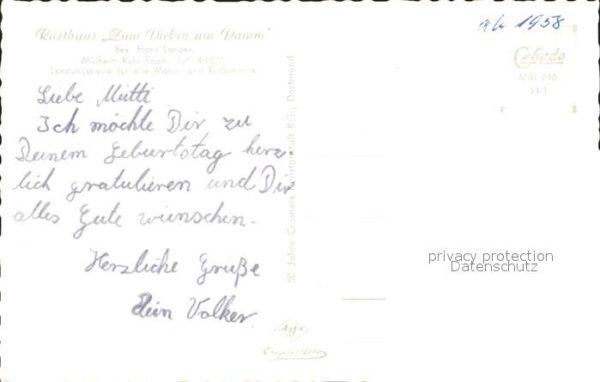 ab 1958
Rasthaus „Zum Dicken am Damm"
Bes. Hans Langen
Mülheim Ruhr-Saarn, Tel.
Landungsstelle für alle Motor- und Ruderboote
Cekade
Mül. 030
54/1
Liebe Mutti
Ich möchte Dir zu
Deinem Geburtstag herz-
lich gratulieren und Dir
alles Gute wünschen.
Herzliche Grüße
Dein Volker
50 Jahre Cramers Kunstanstalt KG., Dortmund
privacy protection
Datenschutz
Agfa